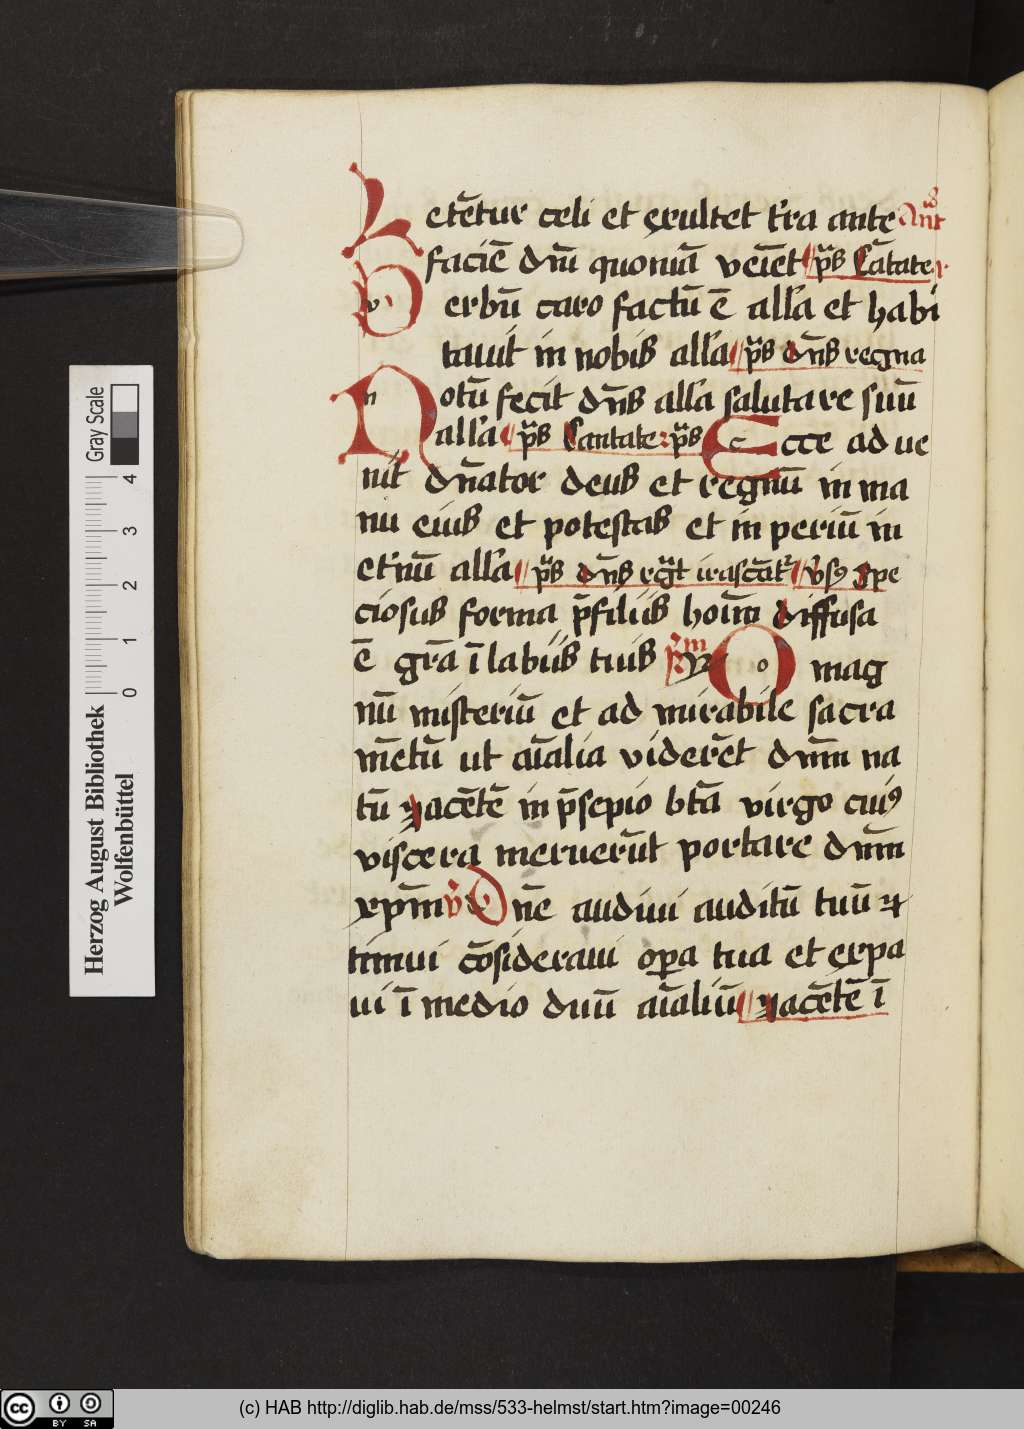 Letētur celi et exultet t'ra ante Ant
faciē dn̄i quoniā veīet p̄s Cātate
Verbū caro factū ē all'a et habi
tauit in nobis all'a p̄s dn̄s regna
Notū fecit dn̄s all'a salutare suū
all'a p̄s Cantate p̄s Ecce adue
nit dn̄ator deus et regnū in ma
nu eius et potestas et in periū in
et'nū all'a p̄s dn̄s rḡt irascāt' v̄sꝰ Spe
ciosus forma p̄ filiis hoīm diffusa
ē gr̄a ī labiis tuis O mag
nū misteriū et ad mirabile sacra
mētū ut aīalia viderēt dn̄m na
tū yacētē in p̄sepio btā virgo cuiꝰ
viscera meruerūt portare dn̄m
xp̄m v̄ Dn̄e audiui auditū tuū ⁊
timui cōsideraui oꝑa tua et expa
ui ī medio duū aīaliū yacētē ī
Herzog August Bibliothek
Wolfenbüttel
Gray Scale
0 1 2 3 4
cc BY SA
(c) HAB http://diglib.hab.de/mss/533-helmst/start.htm?image=00246